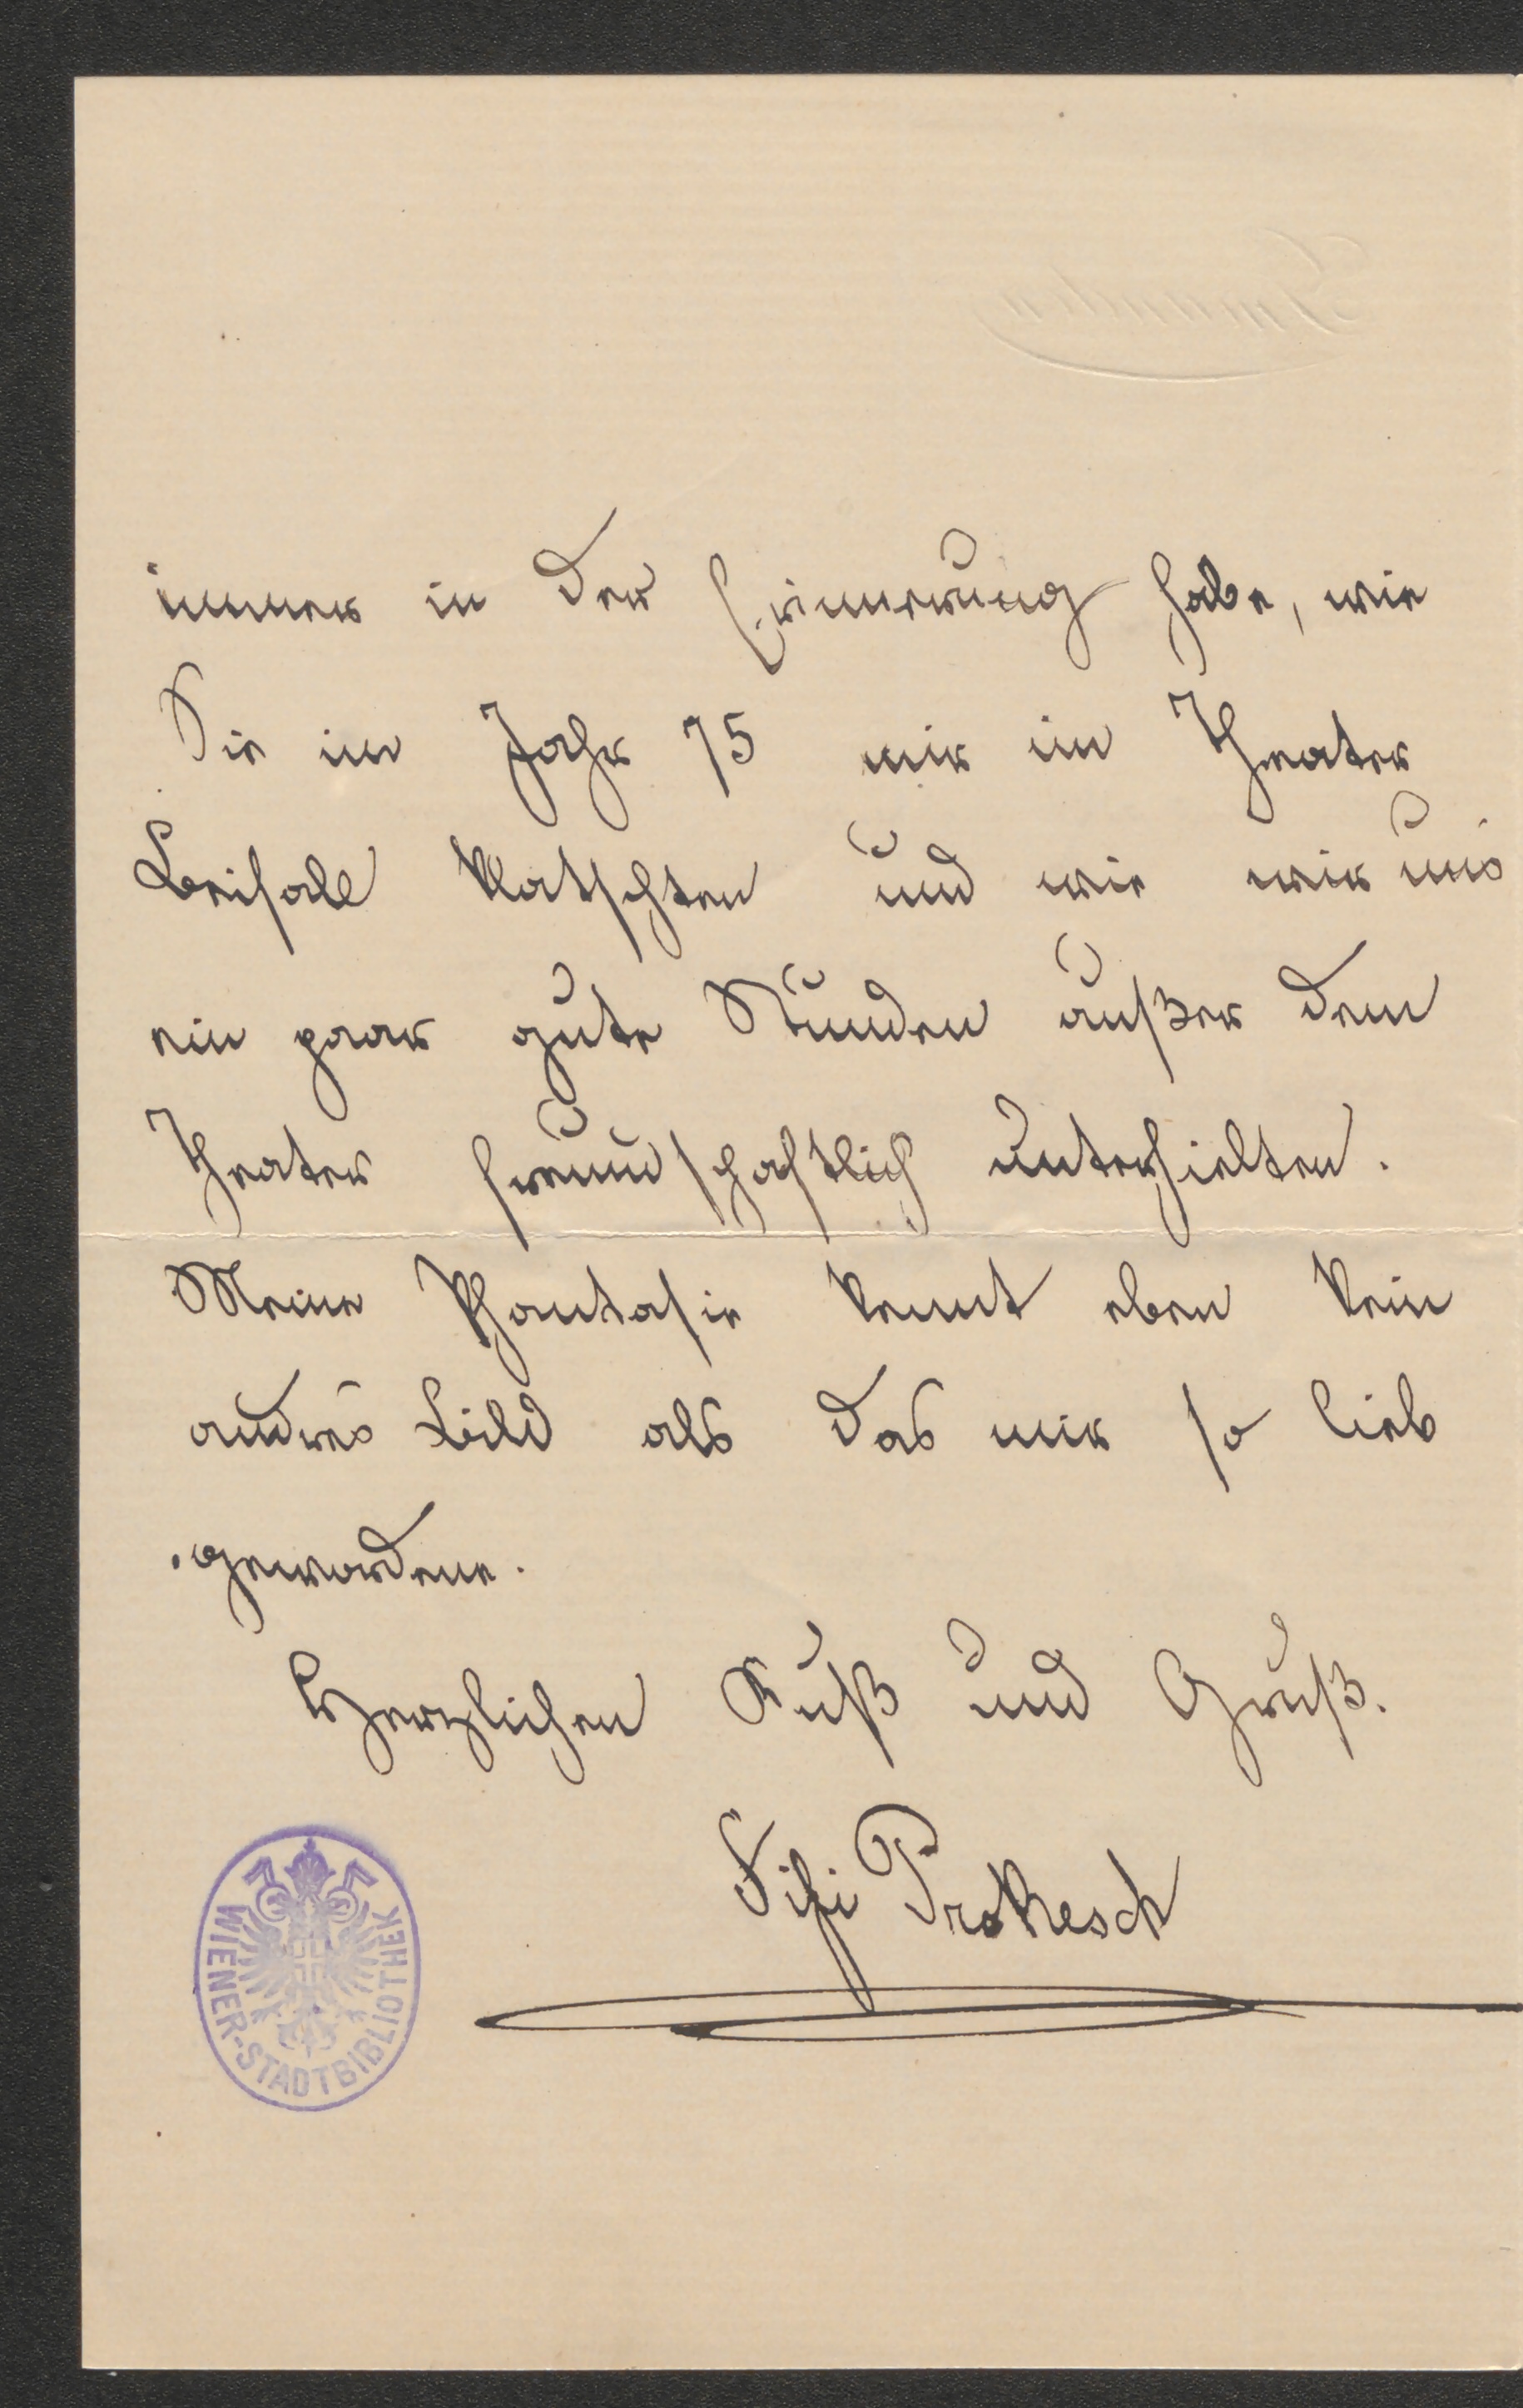 Gmunden
immer in der Erinnerung habe, wie
Sie im Jahr 75 mir im Theater
Beifall klatschten und wie wir uns
ein paar gute Stunden außer dem
Theater freundschaftlich unterhielten.
Meine Phantasie kennt eben kein
andres Bild als das mir so lieb
gewordene.
Herzlichen Kuß und Gruß.
Fifi Prokesch
WIENER-STADTBIBLIOTHEK